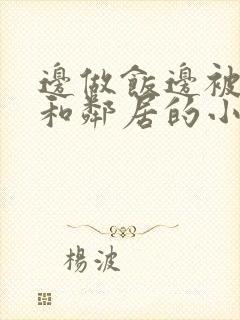 邊做飯邊被
和鄰居的小
楊波